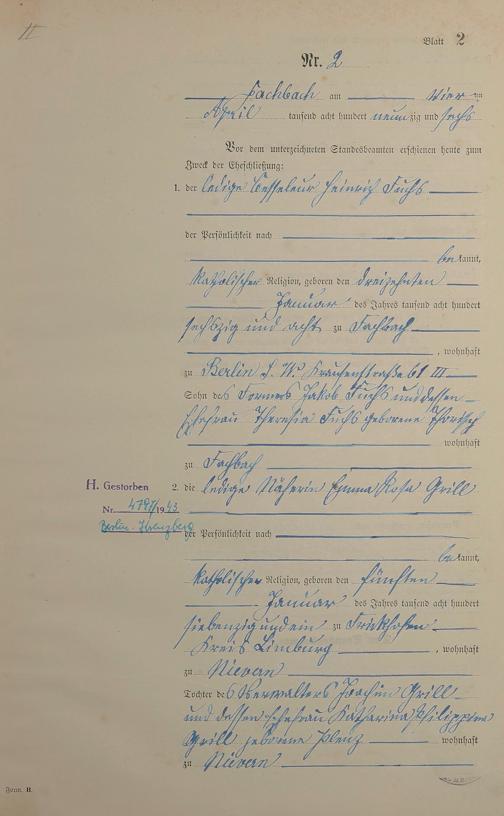 II
Blatt 2
Nr. 2
Fachbach am vier ten
April tausend acht hundert neunzig und sechs
Vor dem unterzeichneten Standesbeamten erschienen heute zum
Zweck der Eheschließung:
1. der ledige Heinrich Fuchs
der Persönlichkeit nach
be kannt,
katholischer Religion, geboren den dreizehnten
Januar des Jahres tausend acht hundert
sechszig und acht zu Fachbach
, wohnhaft
zu Berlin S. W. Krausenstraße 61 III
Sohn des Formers Jakob Fuchs und dessen
Ehefrau Theresia Fuchs geborene
wohnhaft
zu Fachbach
H. Gestorben
Nr. 1943
Berlin-Kreuzberg
2. die ledige Näherin Emma Rosa Grill
der Persönlichkeit nach
be kannt,
katholischer Religion, geboren den fünften
Januar des Jahres tausend acht hundert
siebenzig und ein zu Frickhofen
Kreis Limburg , wohnhaft
zu Nievern
Tochter des Verwalters Joachim Grill
und dessen Ehefrau Katharina Philippine
Grill geborene Plenz wohnhaft
zu Nievern
Form. B.